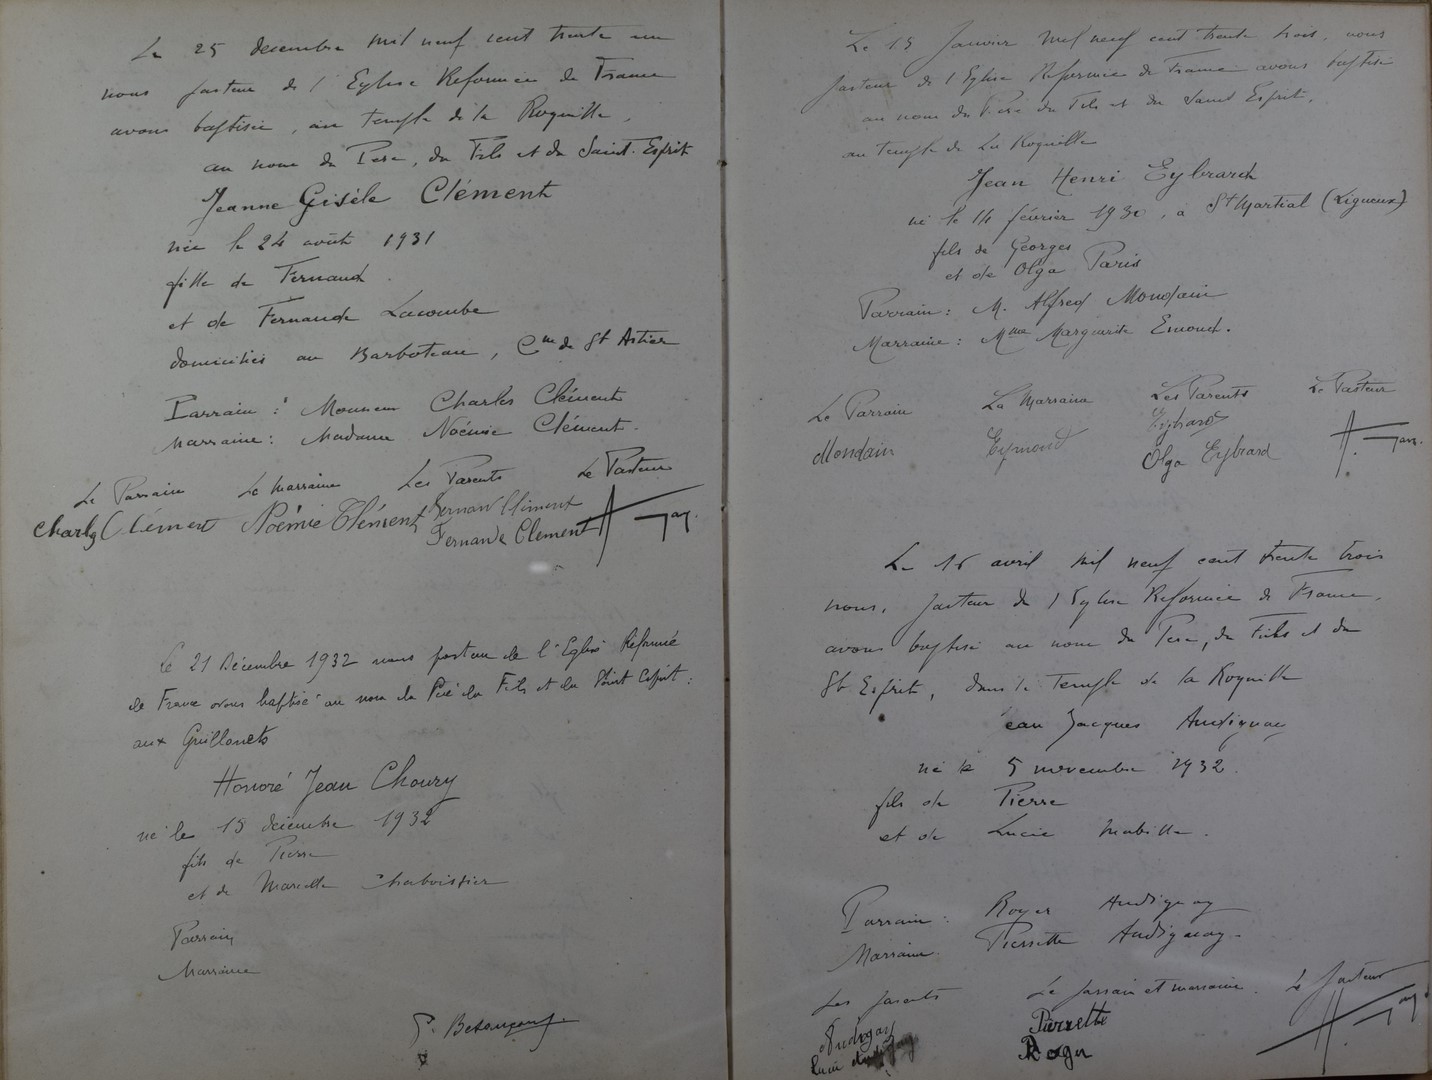 Le 25 decembre mil neuf cent trente un
nous pasteur de l'Eglise Reformée de France
avons baptisée, au temple de la Roquille,
au nom du Pere, du Fils et du Saint-Esprit
Jeanne Gisèle Clément
née le 24 août 1931
fille de Fernand
et de Fernande Lacombe
domiciliés au Barboteau, Cne de St Astier
Parrain : Monsieur Charles Clément
Marraine : Madame Noémie Clément.
Le Parrain La Marraine Les Parents Le Pasteur
Charles Clément Noémie Clément Fernand Clément
Fernande Clement
le 21 Décembre 1932 nous pasteur de l'Eglise Réformée
de France avons baptisé au nom du Père du Fils et du Saint Esprit :
aux Guillonets
Honoré Jean Choury
né le 15 décembre 1932
fils de Pierre
et de Marcelle Chaboissier
Parrain
Marraine
Le 15 Janvier mil neuf cent trente trois, nous
pasteur de l'Eglise Reformée de France avons baptisé
au nom du Pere du Fils et du Saint Esprit,
au temple de La Roquille
Jean Henri Eybrard
né le 14 février 1930, à St Martial (Ligueux)
fils de Georges
et de Olga Paris
Parrain : M. Alfred Mondain
Marraine : Mme Marguerite Emond.
Le Parrain La Marraine Les Parents Le Pasteur
Mondain Eymond Eybrard
Olga Eybrard
Le 16 avril mil neuf cent trente trois
nous, pasteur de l'Eglise Reformée de France,
avons baptisé au nom du Pere, du Fils et du
St Esprit, dans le temple de la Roquille
ean Jacques Audignay
né le 5 novembre 1932.
fils de Pierre
et de Lucie Mabille.
Parrain : Roger Audignay
Marraine Pierrette Audignay.
Les parents Le parrain et marraine. Le pasteur
Audigay Pierrette
Lucie Roger